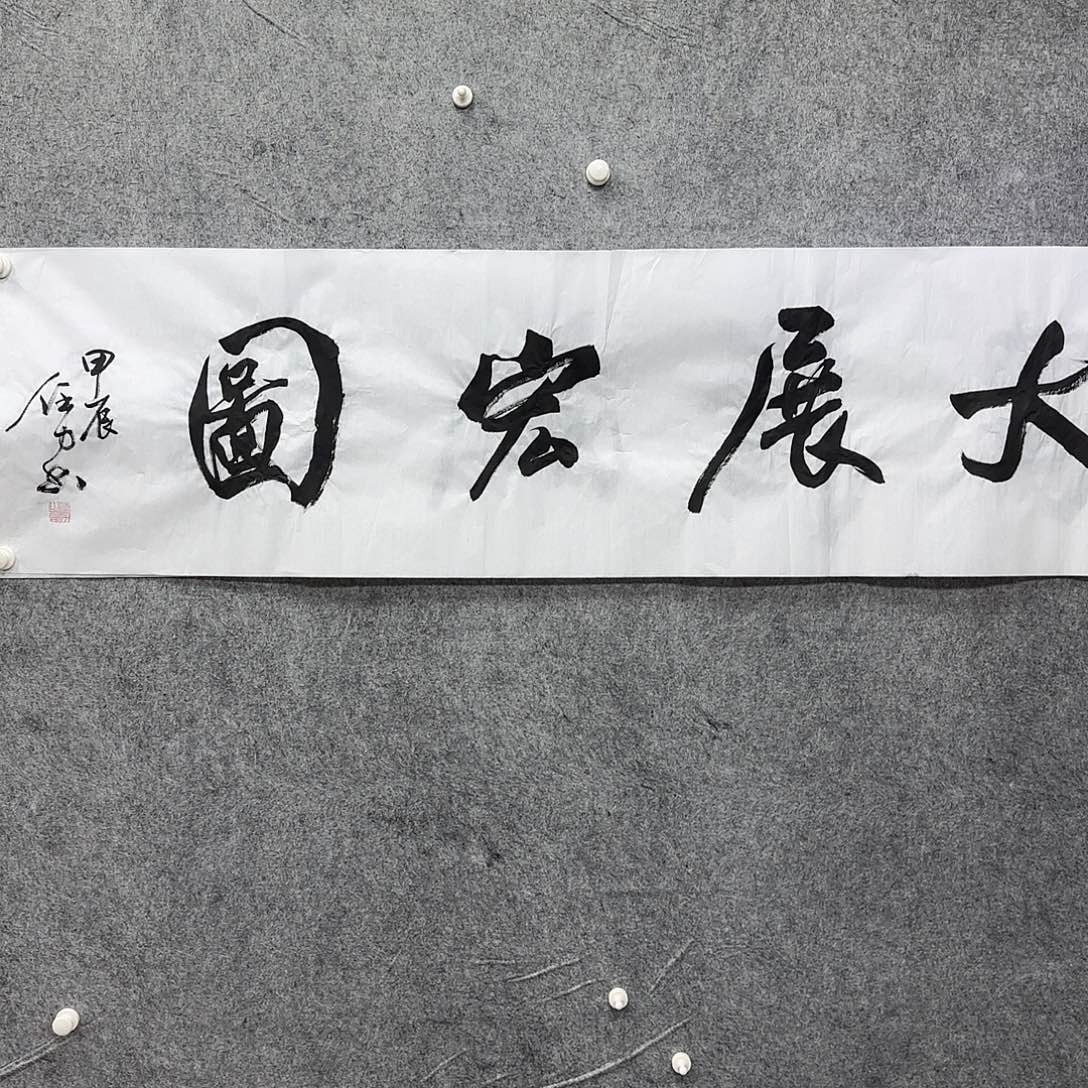 大展宏圖
甲辰
任力书